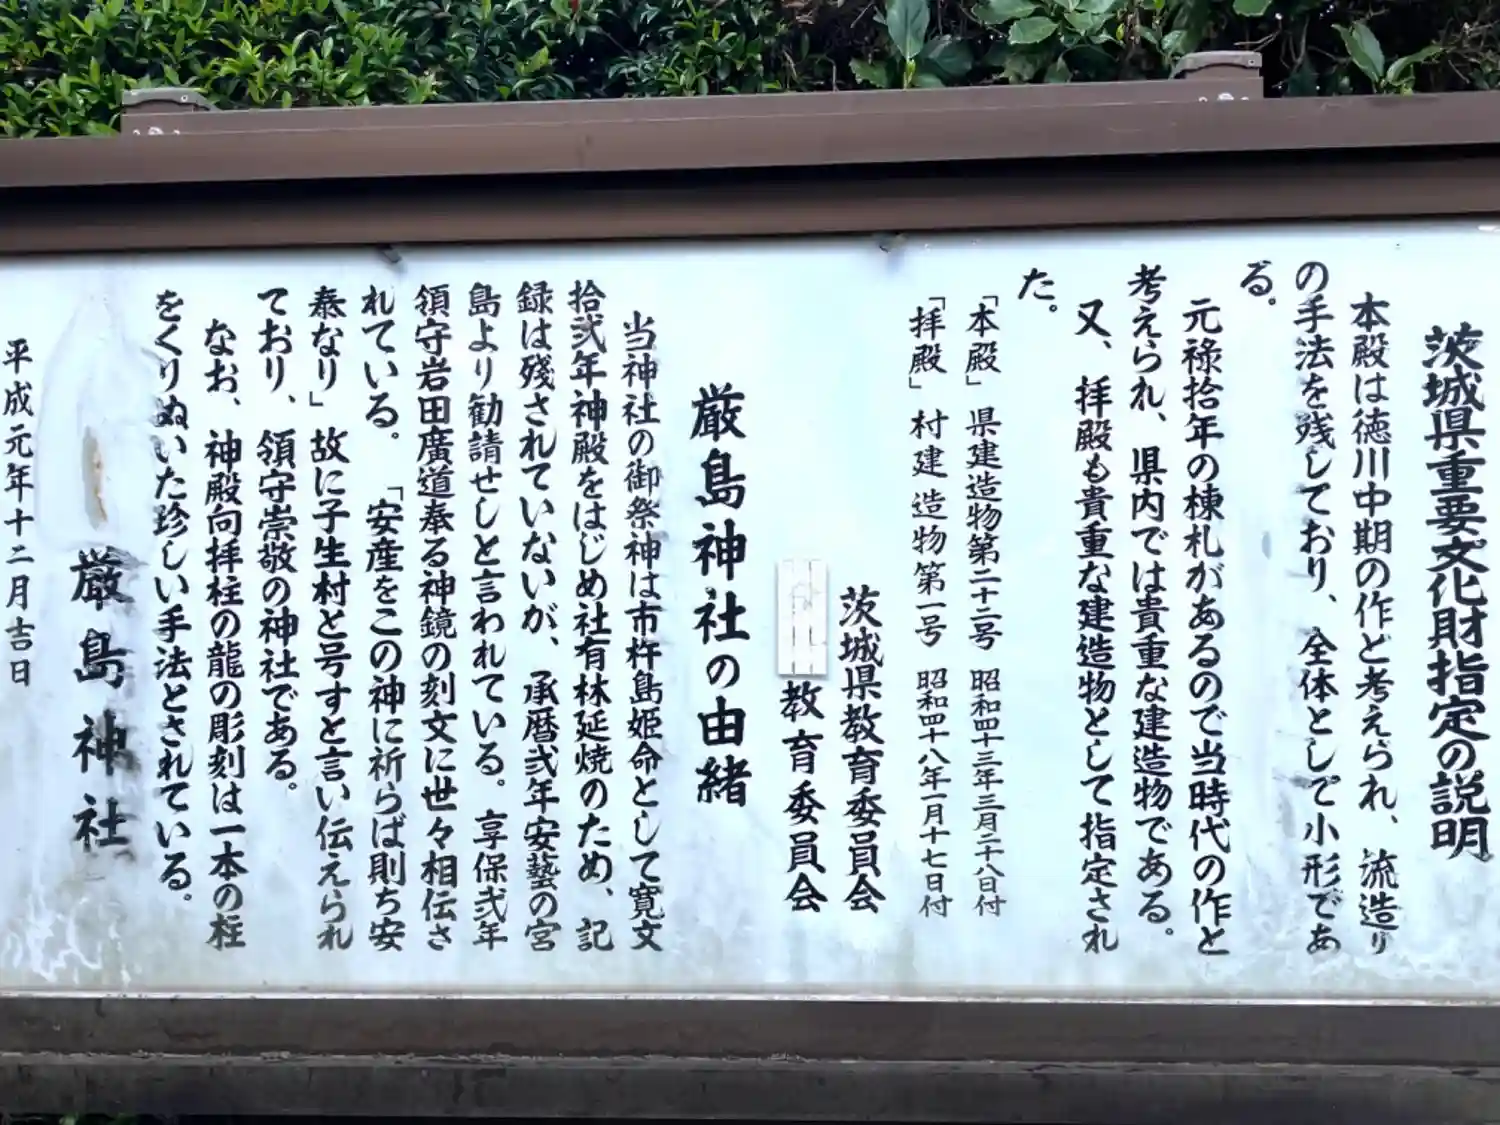 茨城県重要文化財指定の説明
本殿は徳川中期の作と考えられ、流造り
の手法を残しており、全体として小形であ
る。
元禄拾年の棟札があるので当時代の作と
考えられ、県内では貴重な建造物である。
又、拝殿も貴重な建造物として指定され
た。
「本殿」県建造物第二十二号 昭和四十三年三月二十八日付
「拝殿」村建造物第一号 昭和四十八年一月十七日付
茨城県教育委員会
教育委員会
厳島神社の由緒
当神社の御祭神は市杵島姫命として寛文
拾弐年神殿をはじめ社有林延焼のため、記
録は残されていないが、承暦弐年安藝の宮
島より勧請せしと言われている。享保弐年
領守岩田廣道奉る神鏡の刻文に世々相伝さ
れている。「安産をこの神に祈らば則ち安
泰なり」故に子生村と号すと言い伝えられ
ており、領守崇敬の神社である。
なお、神殿向拝柱の龍の彫刻は一本の柱
をくりぬいた珍しい手法とされている。
厳島神社
平成元年十二月吉日